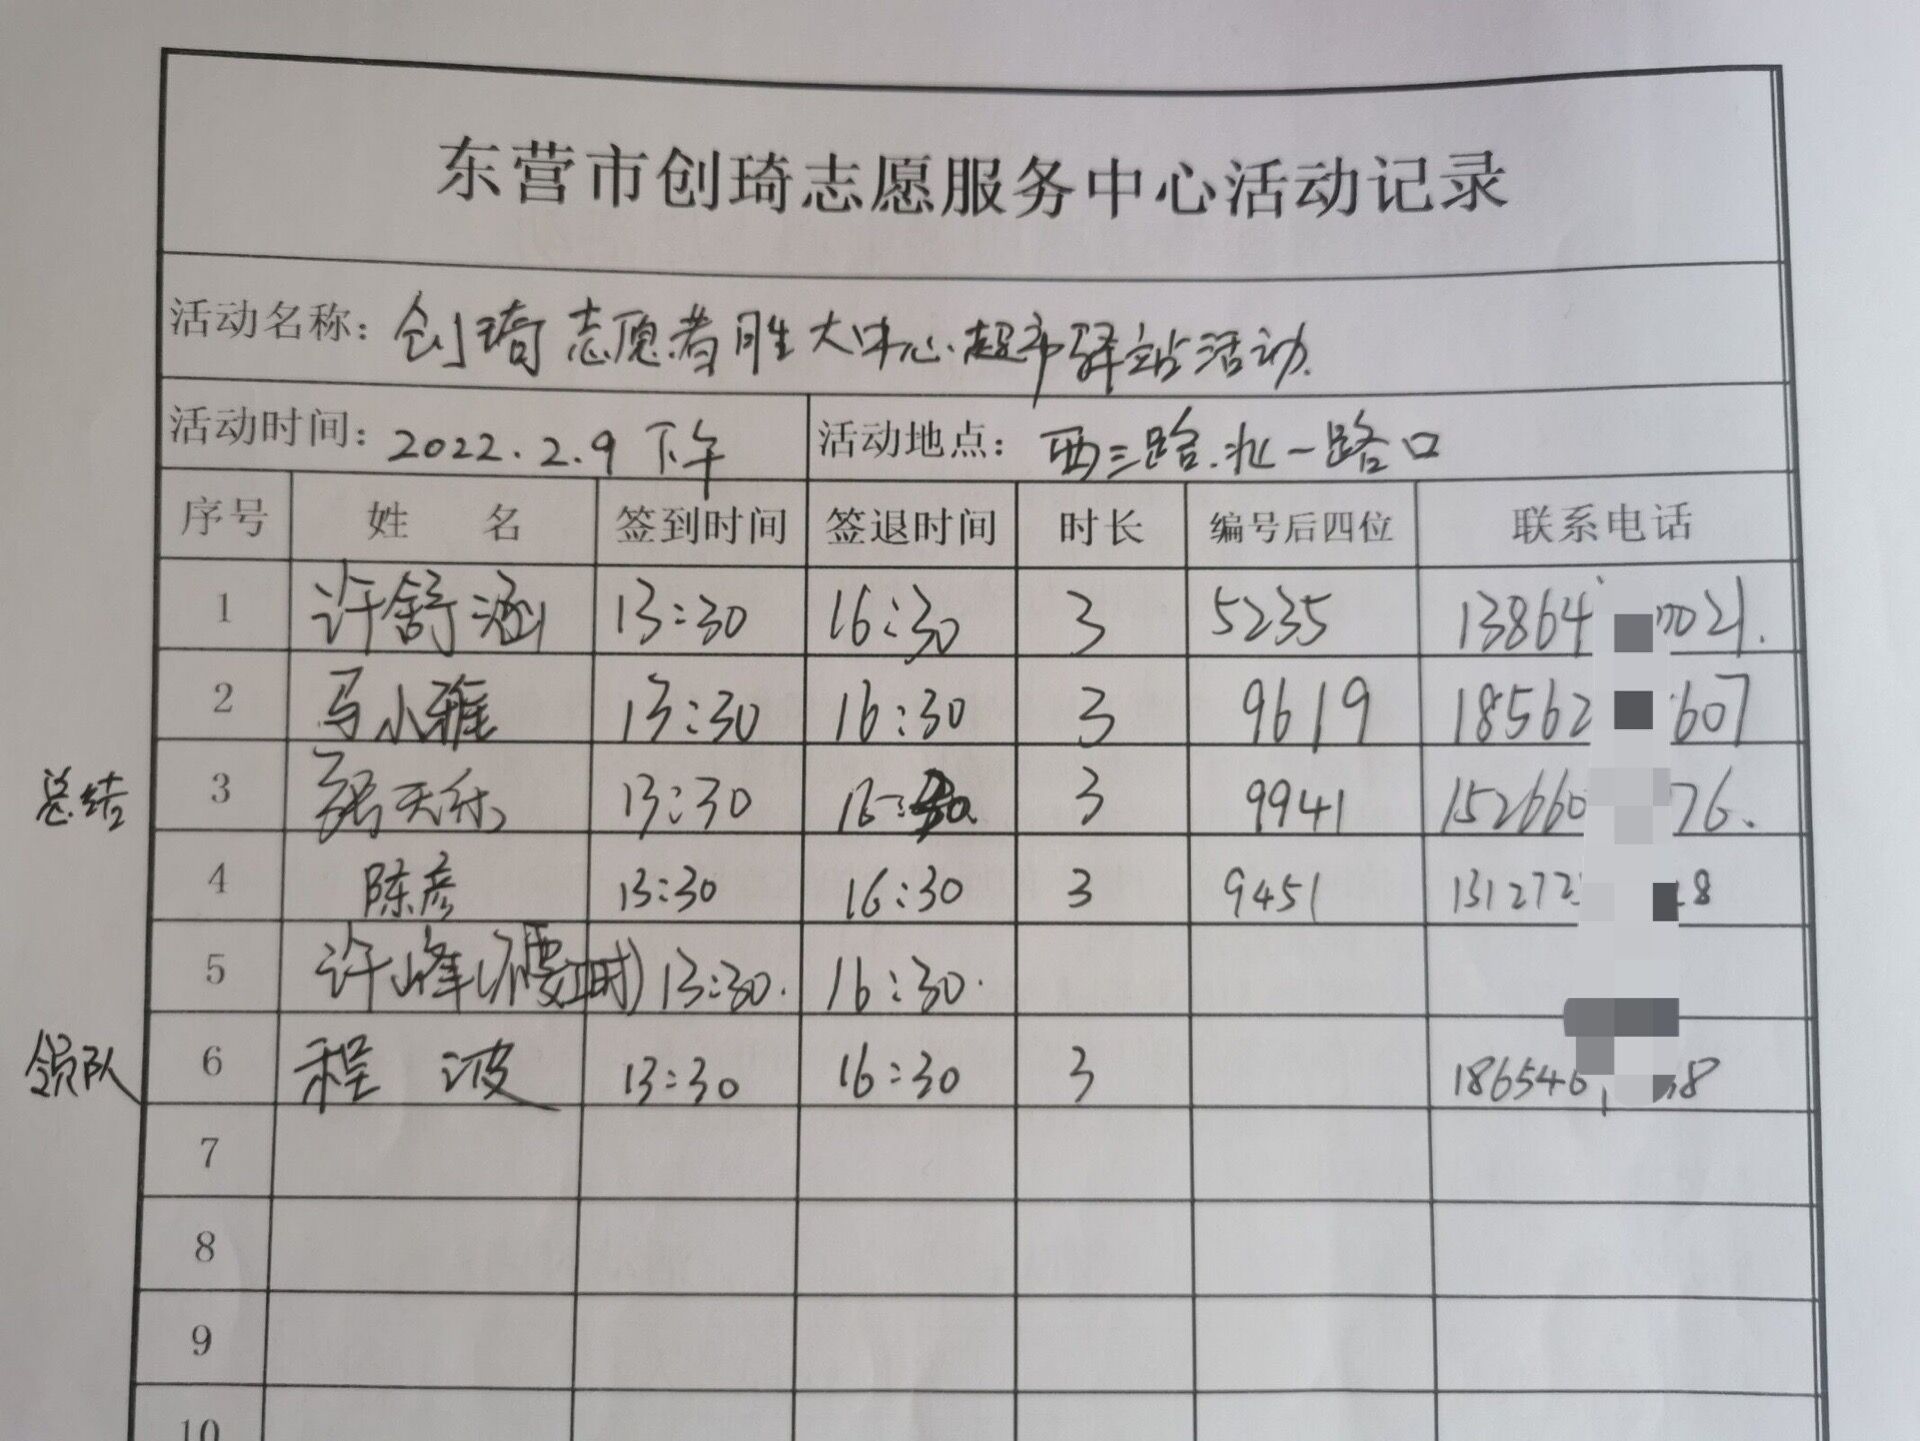 东营市创琦志愿服务中心活动记录
活动名称: 创琦志愿者胜大中心超市驿站活动.
活动时间: 2022.2.9 下午 活动地点: 西三路.北一路口
序号 姓 名 签到时间 签退时间 时长 编号后四位 联系电话
1 许舒涵 13:30 16:30 3 5235 13864 021.
2 马小雅 13:30 16:30 3 9619 18562 607
总结 3 天 13:30 16:30. 3 9941 152660 76.
4 陈彦 13:30 16:30 3 9451 131272 8
5 许峰(不要工时) 13:30. 16:30.
领队 6 程 波 13:30 16:30 3 186546 8
7
8
9
10